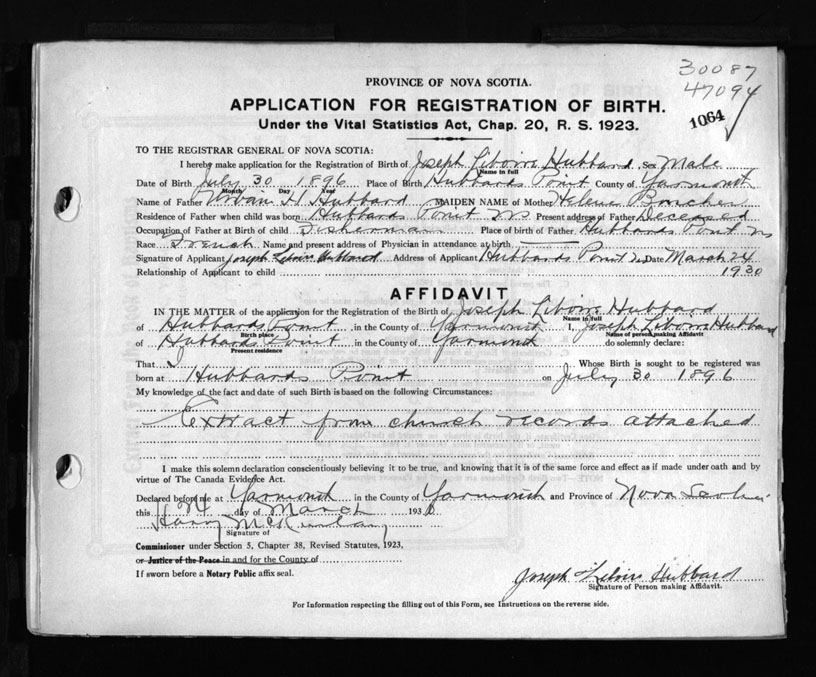 30087
47094
1064
PROVINCE OF NOVA SCOTIA.
APPLICATION FOR REGISTRATION OF BIRTH.
Under the Vital Statistics Act, Chap. 20, R. S. 1923.
TO THE REGISTRAR GENERAL OF NOVA SCOTIA:
I hereby make application for the Registration of Birth of Joseph Hubbard Sex Male
Name in full
Date of Birth July 30 1896 Place of Birth Hubbards Point County of Yarmouth
Month Day Year
Name of Father Urbain H Hubbard MAIDEN NAME of Mother Helene
Residence of Father when child was born Hubbards Point NS Present address of Father Deceased
Occupation of Father at Birth of child Fisherman Place of birth of Father Hubbards Point NS
Race French Name and present address of Physician in attendance at birth
Signature of Applicant Joseph Hubbard Address of Applicant Hubbards Point NS Date March 24
Relationship of Applicant to child 1930
AFFIDAVIT
IN THE MATTER of the application for the Registration of the Birth of Joseph Hubbard
Name in full
of Hubbards Point, in the County of Yarmouth I, Joseph Hubbard
Birth place Name of person making Affidavit
of Hubbards Point, in the County of Yarmouth do solemnly declare:
Present residence
That I Whose Birth is sought to be registered was
born at Hubbards Point on July 30 1896
My knowledge of the fact and date of such Birth is based on the following Circumstances:
Extract from church records attached
I make this solemn declaration conscientiously believing it to be true, and knowing that it is of the same force and effect as if made under oath and by
virtue of The Canada Evidence Act.
Declared before me at Yarmouth in the County of Yarmouth and Province of Nova Scotia
this 24 day of March 1930
Harry
Signature of
Commissioner under Section 5, Chapter 38, Revised Statutes, 1923,
or Justice of the Peace in and for the County of
If sworn before a Notary Public affix seal.
Joseph Hubbard
Signature of Person making Affidavit.
For Information respecting the filling out of this Form, see Instructions on the reverse side.